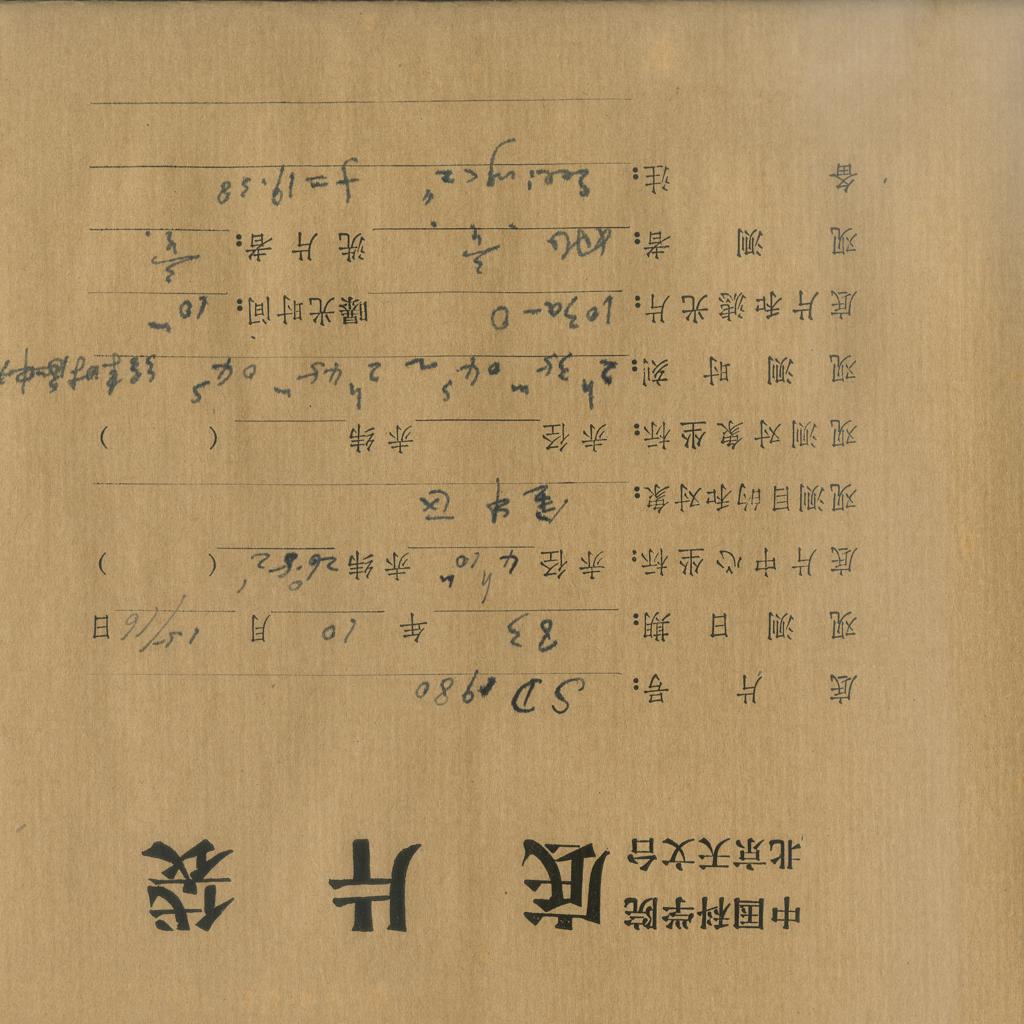 中国科学院
北京天文台 底片袋
底片号: SD 1980
观测日期: 83 年 10 月 15/16 日
底片中心坐标: 赤径 4h 10m 赤纬 26°52′ ( )
观测目的和对象: 金牛区
观测对象坐标: 赤径 赤纬 ( )
观测时刻: 2h 35m 04s 2h 45m 04s
底片和滤光片: 103a-O 曝光时间: 10m
观测者: 洗片者:
备注: Seeing<2″ f=19.58